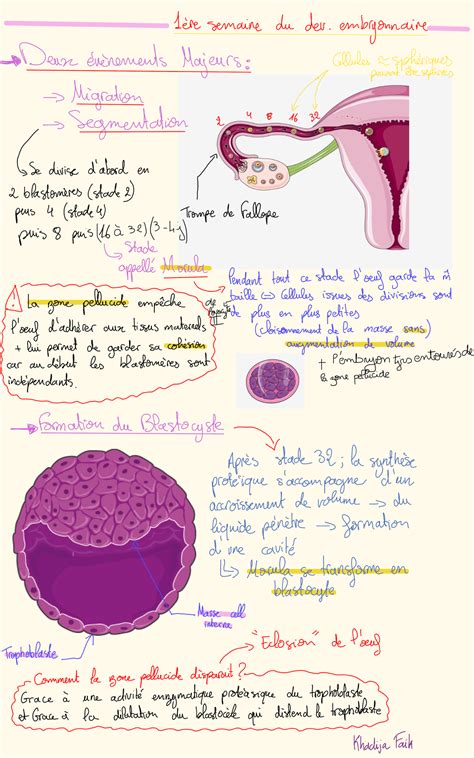 1ère semaine du dev. embryonnaire
Deux évènements Majeurs:
Cellules ≈ sphériques
peuvent être séparées
→ Migration
→ Segmentation
2 4 8 16 32
Se divise d'abord en
2 blastomères (stade 2)
puis 4 (stade 4)
puis 8 puis (16 à 32) (3-4j)
Trompe de Fallope
↳ Stade
appelé Morula
Pendant tout ce stade l'œuf garde la m̂
taille ↔ Cellules issues des divisions sont
de plus en plus petites
(Cloisonnement de la masse sans
augmentation de volume
+ l'embryon tjs entouré de
la zone pellucide
! La zone pellucide empêche
l'œuf d'adhérer aux tissus maternels
+ lui permet de garder sa cohésion
car au début les blastomères sont
indépendants.
→ Formation du Blastocyste
Après stade 32 ; la synthèse
protéique s'accompagne d'un
accroissement de volume → du
liquide pénètre → formation
d'une cavité
↳ Morula se transforme en
blastocyte
Masse cell
interne
Trophoblaste
"Eclosion" de l'œuf
Comment la zone pellucide disparaît ?
Grace à une activité enzymatique protéasique du trophoblaste
et Grace à la dilatation du blastocèle qui distend le trophoblaste
Khadija Faik